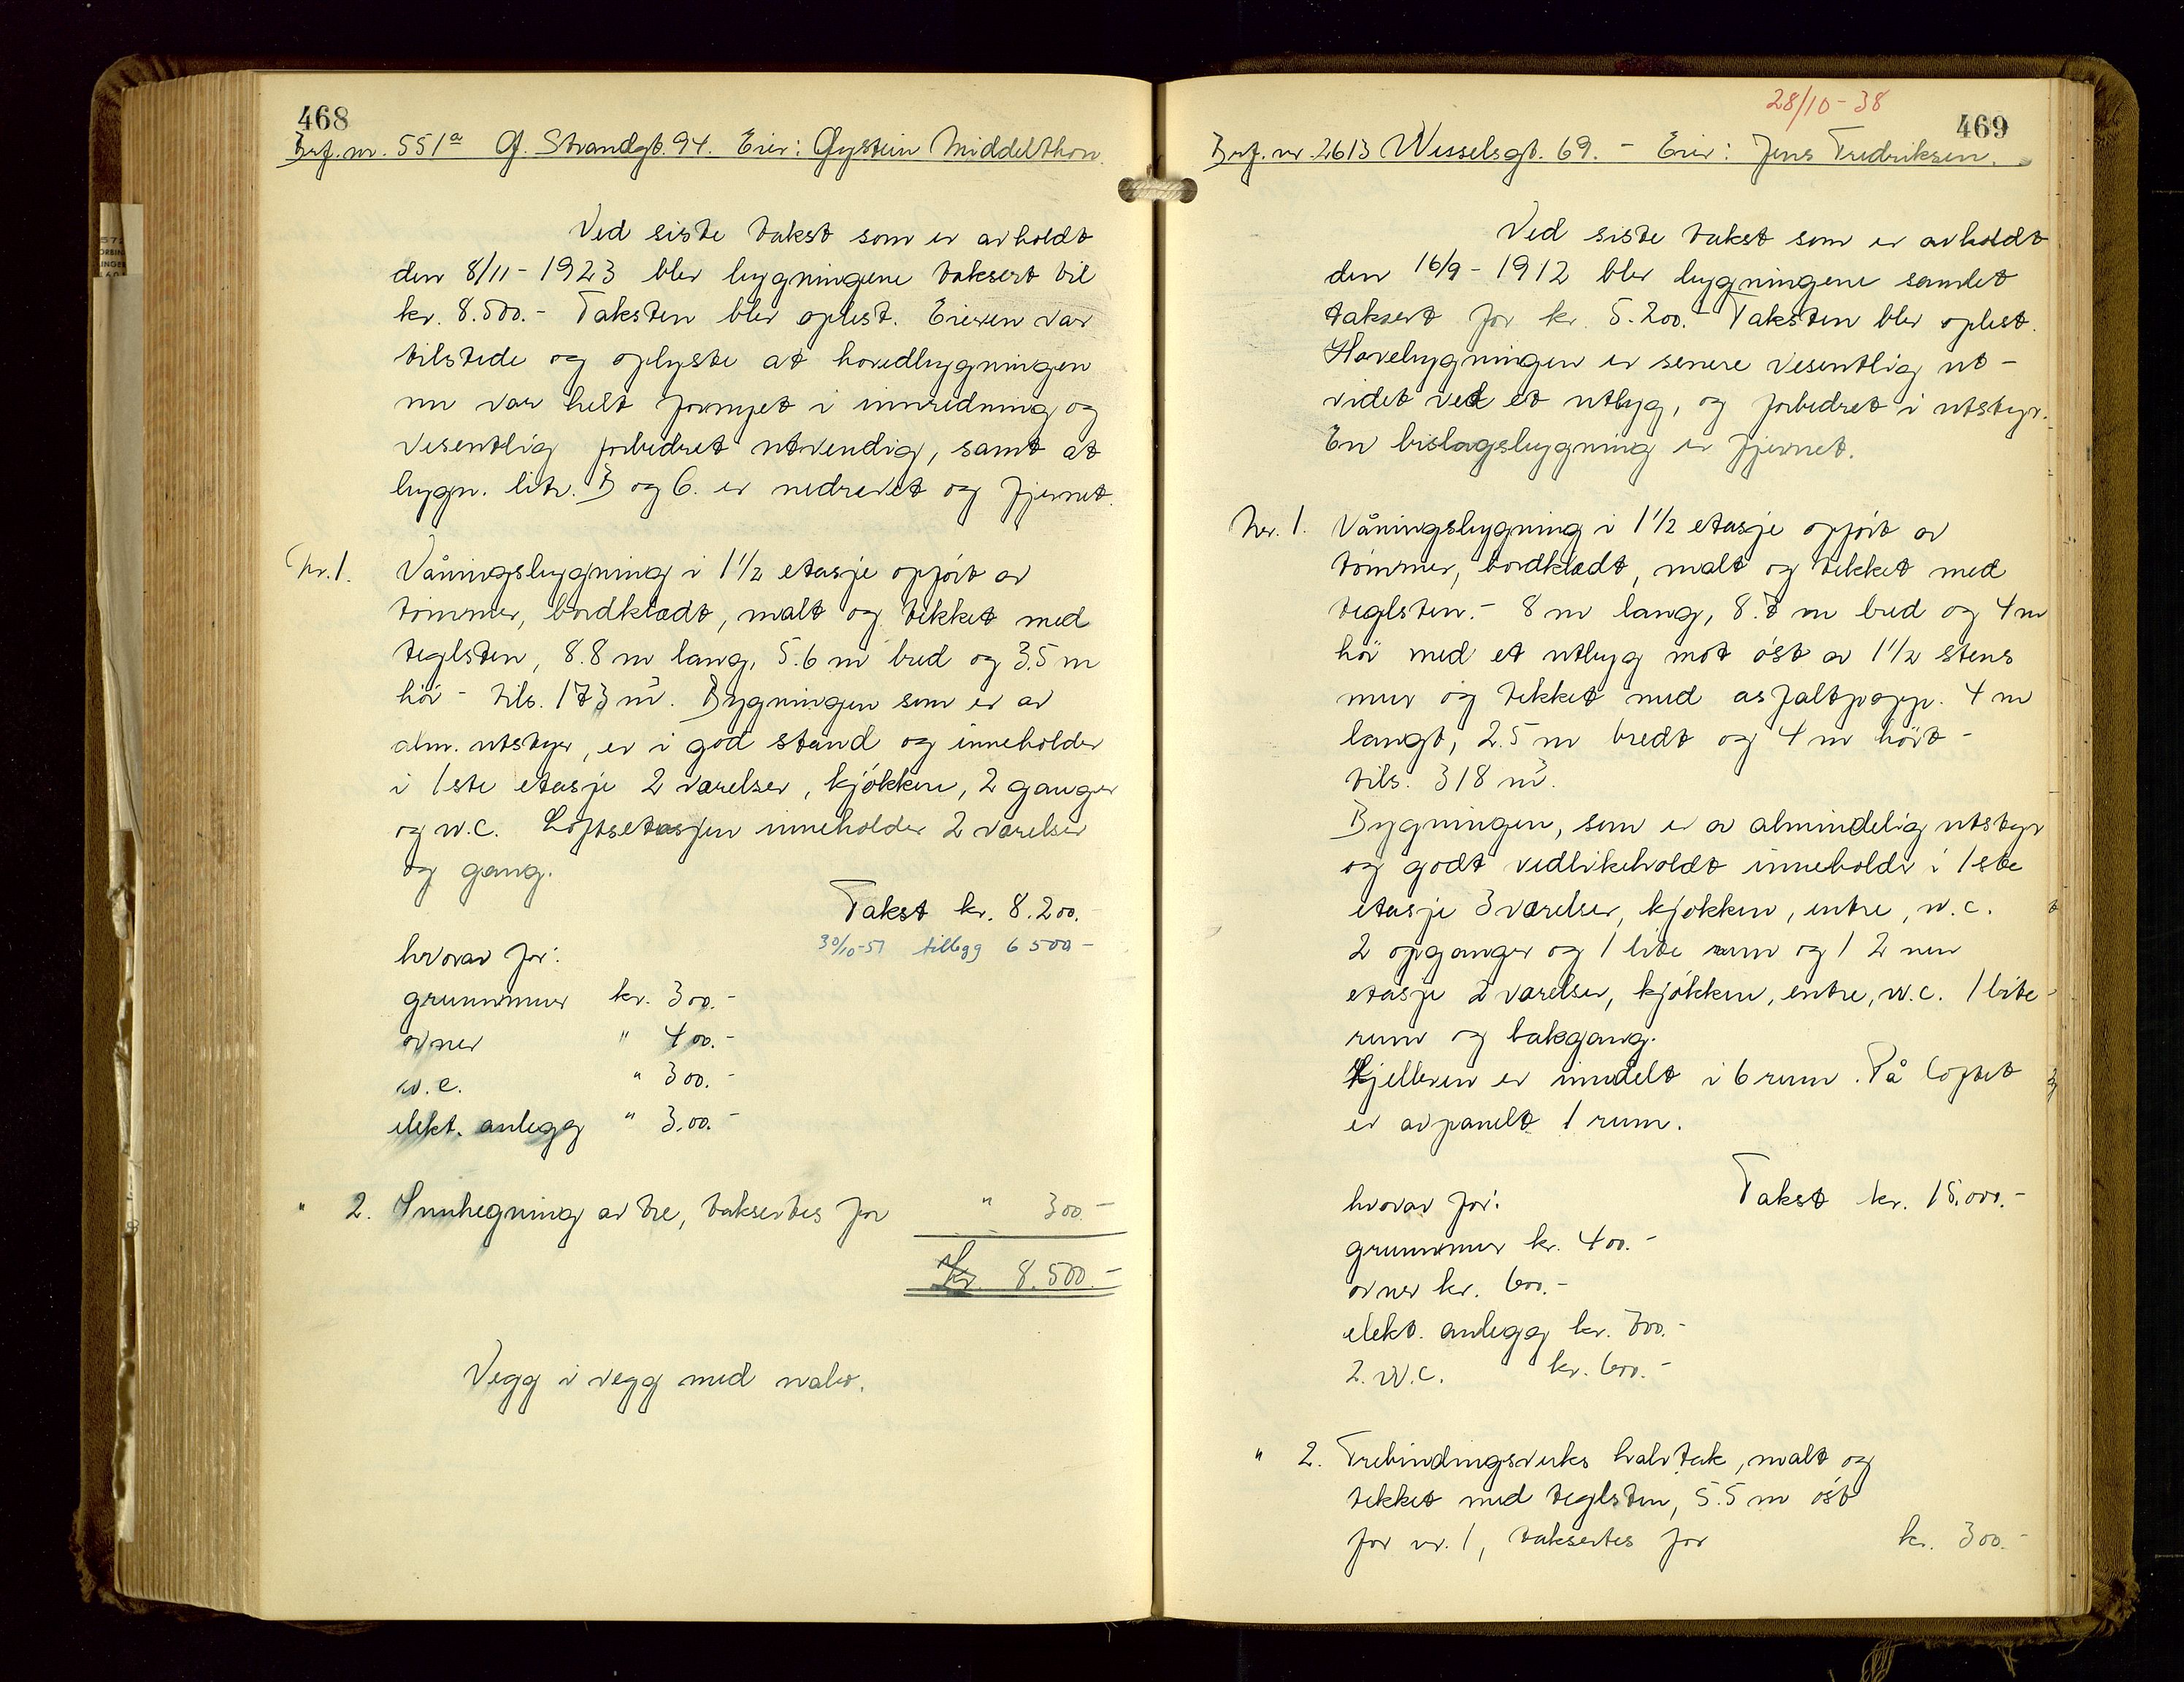 468
Brf. nr. 551a Ø. Strandgt. 94. Eier: Øystein Middelthon.
Ved siste takst som er avholdt
den 8/11 - 1923 blev bygningene taksert til
kr. 8.500.- Taksten blev oplest. Eieren var
tilstede og oplyste at hovedbygningen
nu var helt fornyet i innredning og
vesentlig forbedret utvendig, samt at
bygn. litr. B og C. er nedrevet og fjernet.
Nr. 1. Våningsbygning i 1 1/2 etasje opført av
tømmer, bordklædt, malt og tekket med
teglsten, 8.8 m lang, 5.6 m bred og 3.5 m
høi - tils. 173 m³. Bygningen som er av
alm. utstyr, er i god stand og inneholder
i 1ste etasje 2 værelser, kjøkken, 2 ganger
og w.c. Loftsetasjen inneholder 2 værelser
og gang.
Takst kr. 8.200.-
30/10-51 tillegg 6500-
hvorav for:
grunnmur kr. 300.-
ovner " 400.-
w.c. " 300.-
elekt. anlegg " 300.-
" 2. Innhegning av tre, taksertes for " 300.-
Kr. 8.500.-
Vegg i vegg med nabo.
28/10-38
469
Brf. nr. 2613 Wesselsgt. 69. - Eier: Jens Fredriksen.
Ved siste takst som er avholdt
den 16/9 - 1912 blev bygningene samlet
taksert for kr. 5.200.- Taksten blev oplest.
Hovebygningen er senere vesentlig ut-
videt ved et utbyg, og forbedret i utstyr.
En bislagsbygning er fjernet.
Nr. 1. Våningsbygning i 1 1/2 etasje opført av
tømmer, bordklædt, malt og tekket med
teglsten.- 8 m lang, 8.7 m bred og 4 m
høi med et utbyg mot øst av 1 1/2 stens
mur og tekket med asfaltpapp. 4 m
langt, 2.5 m bredt og 4 m høit -
tils. 318 m³.
Bygningen, som er av almindelig utstyr
og godt vedlikeholdt inneholder i 1ste
etasje 3 værelser, kjøkken, entre, w.c.
2 opganger og 1 lite rum og i 2 nen
etasje 2 værelser, kjøkken, entre, w.c. 1 lite
rum og bakgang.
Kjelleren er inndelt i 6 rum. På loftet
er avpanelt 1 rum.
Takst kr. 15.000.-
hvorav for:
grunnmur kr. 400.-
ovner kr. 600.-
elekt. anlegg kr. 700.-
2. W.C. kr. 600.-
" 2. Trebindingsverks halvtak, malt og
tekket med teglsten, 5.5 m øst
for nr. 1, taksertes for kr. 300.-